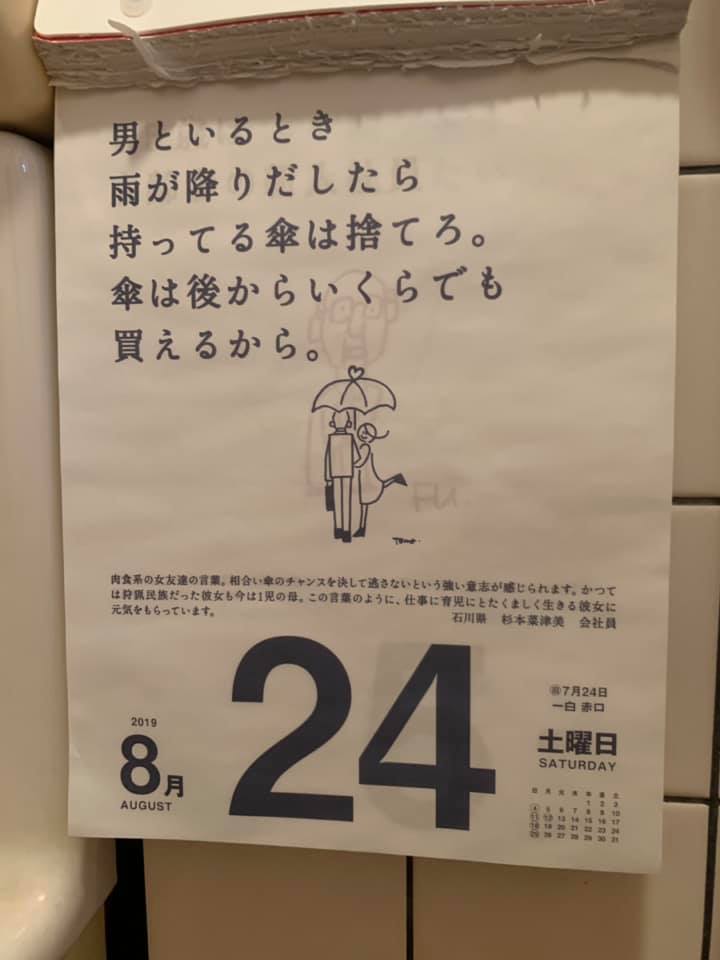 男といるとき
雨が降りだしたら
持ってる傘は捨てろ。
傘は後からいくらでも
買えるから。
Tomo.
肉食系の女友達の言葉。相合い傘のチャンスを決して逃さないという強い意志が感じられます。かつて
は狩猟民族だった彼女も今は1児の母。この言葉のように、仕事に育児にとたくましく生きる彼女に
元気をもらっています。
石川県 杉本菜津美 会社員
2019
8月
AUGUST
24
旧7月24日
一白 赤口
土曜日
SATURDAY
日 月 火 水 木 金 土
1 2 3
4 5 6 7 8 9 10
11 12 13 14 15 16 17
18 19 20 21 22 23 24
25 26 27 28 29 30 31